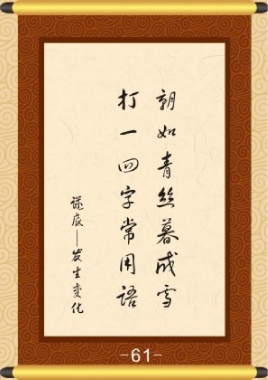 朝如青丝暮成雪
打一四字常用语
谜底——发生变化
-61-